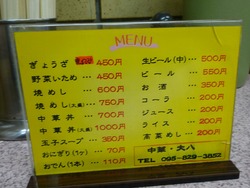 MENU
ぎょうざ 450円
野菜いため 450円
焼めし 600円
焼めし(大盛) 750円
中華丼 700円
中華丼(大盛) 1000円
玉子スープ 350円
おにぎり(1ヶ) 70円
おでん(1本) 110円
生ビール(中) 500円
ビール 550円
お酒 350円
コーラ 200円
ジュース 200円
ライス 200円
高菜めし 550円
中華・大八
TEL 095-829-3853